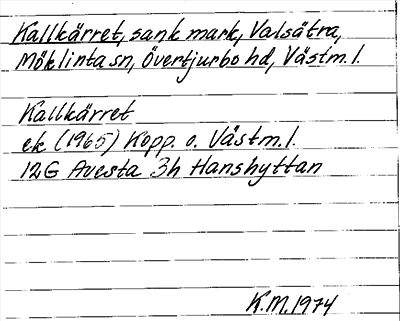 Kallkärret, sank mark, Valsätra,
Möklinta sn, Övertjurbo hd, Västm. l.
Kallkärret
ek (1965) Kopp. o. Västm. l.
12G Avesta 3h Hanshyttan
K.M. 1974